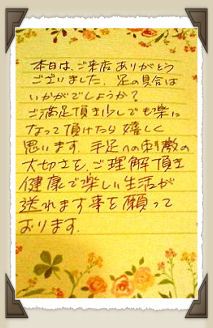 本日は、ご来店ありがとう
ございました。足の具合は
いかがでしょうか？
ご満足頂き少しでも楽に
なって頂けたら嬉しく
思います。手足への刺激の
大切さを、ご理解頂き
健康で楽しい生活が
送れます事を願って
おります。